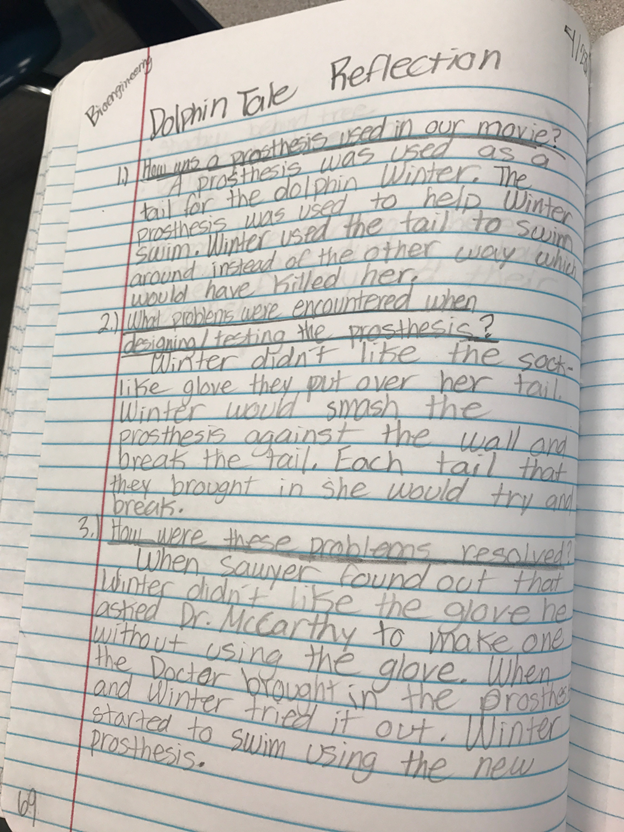 Bioengineering
Dolphin Tale Reflection
1.) How was a prosthesis used in our movie?
A prosthesis was used as a
tail for the dolphin Winter. The
prosthesis was used to help Winter
swim. Winter used the tail to swim
around instead of the other way which
would have killed her.
2.) What problems were encountered when
designing/testing the prosthesis?
Winter didn't like the sock-
like glove they put over her tail.
Winter would smash the
prosthesis against the wall and
break the tail. Each tail that
they brought in she would try and
break.
3.) How were these problems resolved?
When Sawyer found out that
Winter didn't like the glove he
asked Dr. McCarthy to make one
without using the glove. When
the Doctor brought in the prosthe
and Winter tried it out. Winter
started to swim using the new
prosthesis.
69